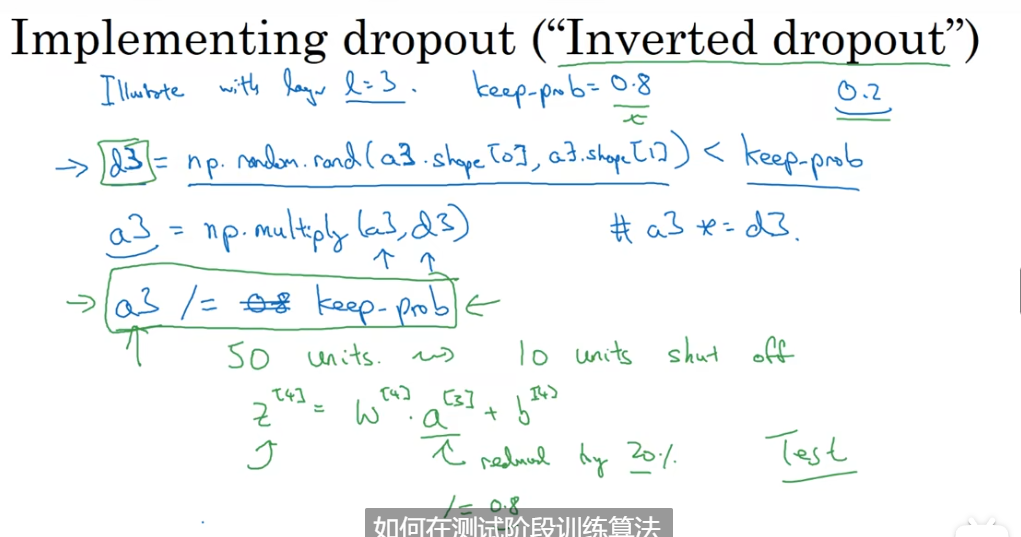 Implementing dropout (“Inverted dropout”)
Illustrate with layer l=3. keep-prob= 0.8 0.2
x
→ d3 = np.random.rand(a3.shape[0], a3.shape[1]) < keep-prob
a3 = np.multiply(a3, d3) # a3 *= d3.
→ a3 /= 0.8 keep-prob ←
50 units. ⇝ 10 units shut off
z[4] = W[4] · a[3] + b[4]
reduced by 20%. Test
/= 0.8
如何在测试阶段训练算法